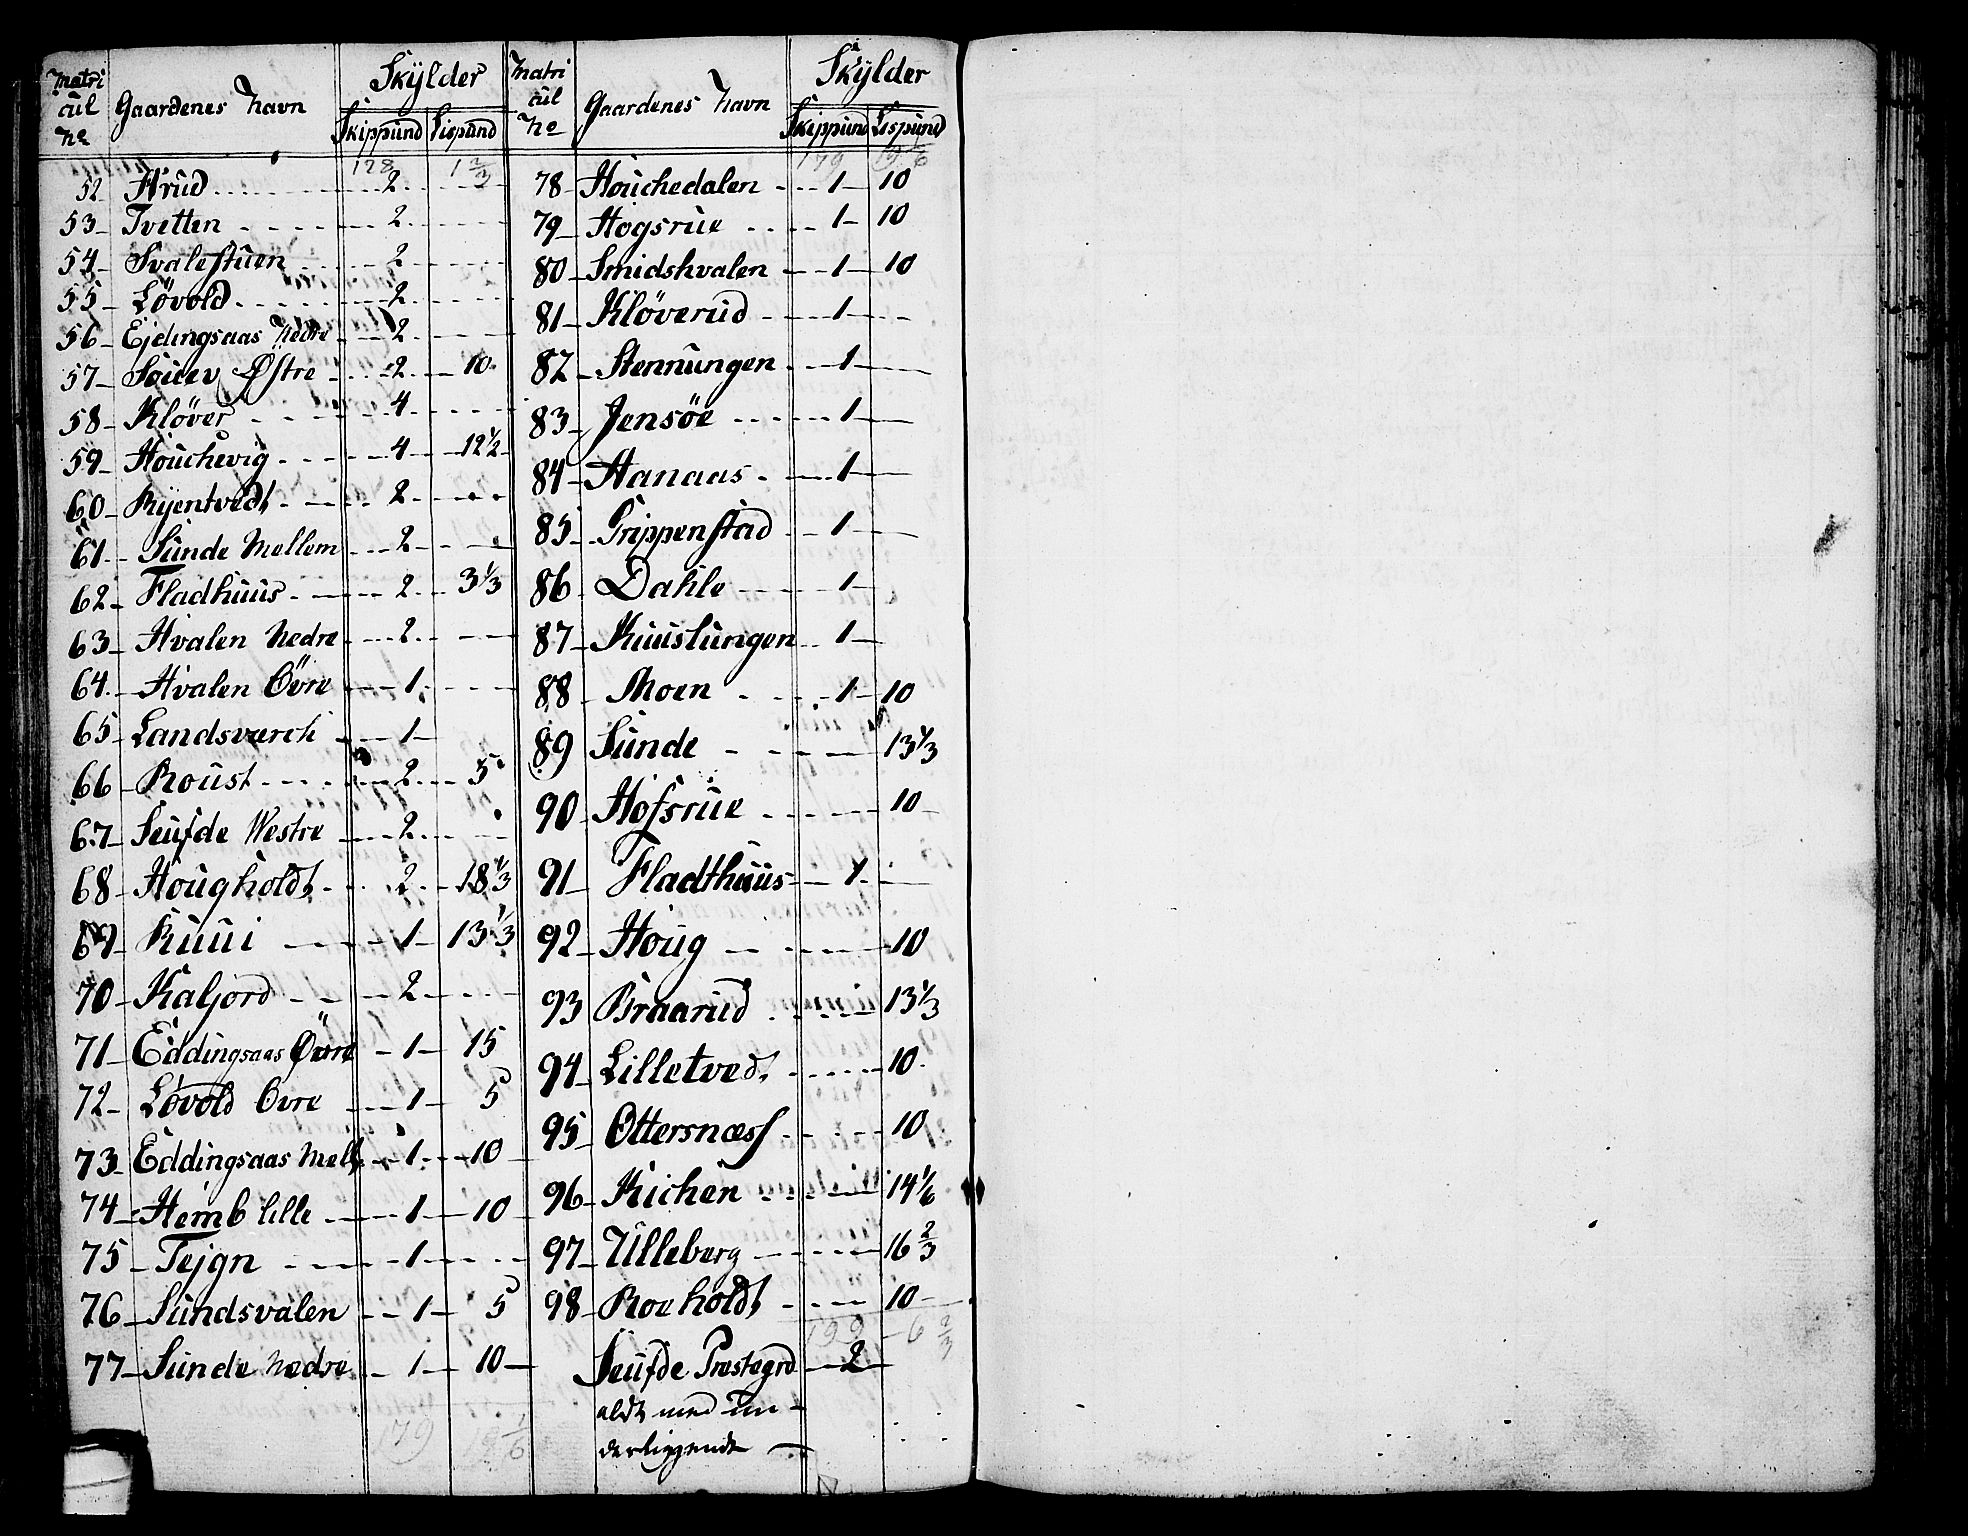 Matri cul No | Gaardenes Navn | Skylder: Skippund | Lispund
128 | 1 2/3
52 Aarud 2
53 Tvetten 2
54 Svalestuen 2
55 Lövold 2
56 Ejdingsaas Nedre 2
57 Söuev Østre 2 10
58 Klöver 4
59 Houchevig 4 12 1/2
60 Ryentvedt 2
61 Sunde Mellem 2
62 Fladhuus 2 3 1/3
63 Hvalen Nedre 2
64 Hvalen Övre 1
65 Landsværch 1
66 Roust 2 5
67 Seufde Westre 2
68 Hougholdt 2 18 1/3
69 Ruui 1 13 1/3
70 Kaljord 2
71 Eddingsaas Övre 1 15
72 Lövold Övre 1 5
73 Eddingsaas Mell: 1 10
74 Hemb lille 1 10
75 Tejgn 1
76 Sundsvalen 1 5
77 Sunde Nedre 1 10
179 19 1/6
Matri cul No | Gaardenes Navn | Skylder: Skippund | Lispund
179 19 1/6
78 Houchedalen 1 10
79 Hogsrue 1 10
80 Smidshvalen 1 10
81 Klöverud 1
82 Stennungen 1
83 Jensöe 1
84 Hanaas 1
85 Grippenstad 1
86 Dahle 1
87 Kuuslungen 1
88 Moen 1 10
89 Sunde 13 1/3
90 Hofsrue 10
91 Fladthuus 1
92 Houg 10
93 Braarud 13 1/3
94 Lilletvedt 10
95 Ottersnæss 10
96 Kichen 14 1/6
97 Ulleberg 16 2/3
98 Roeholdt 10
199 - 6 2/3
Seufde Præstegrd 2
aldt med un-
derliggende